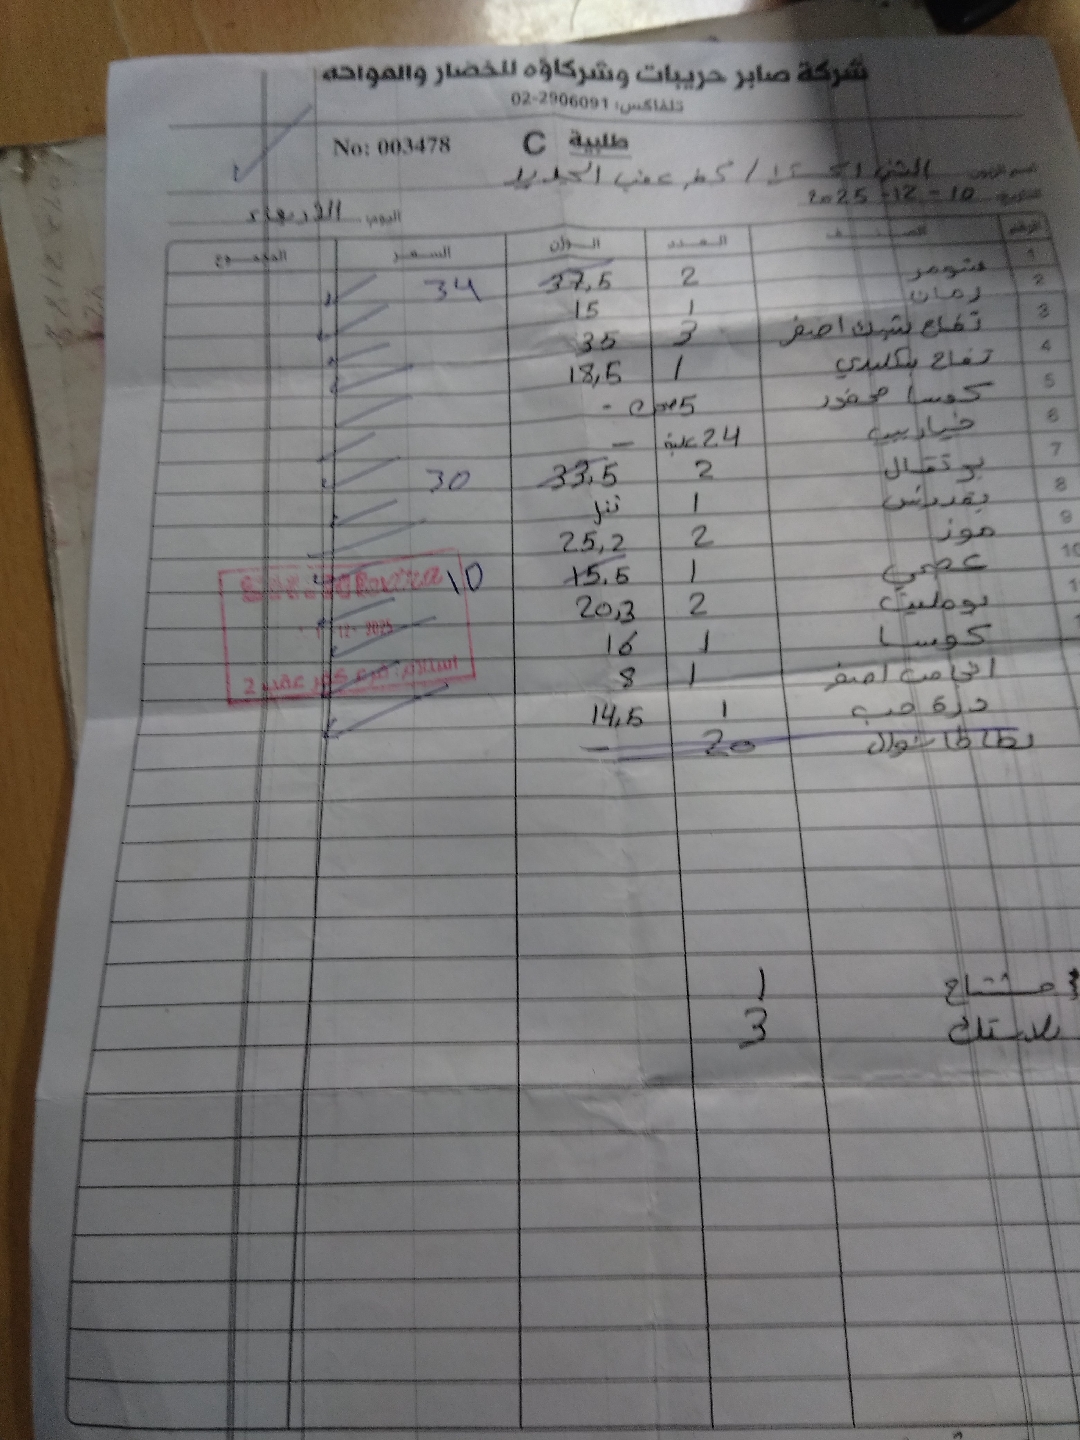 شركة صابر حريبات وشركاؤه للخضار والفواكه
تلفاكس: 02-2906091
No: 003478 C طلبية
كفر عقب الجديد
التاريخ 10-12-2025
اليوم الاربعاء
الرقم الصنف العدد الوزن السعر المجموع
1 شومر 2 37,5 34
2 رمان 1 15
3 تفاح اصفر 3 35
4 تفاح 1 18,5
5 كوسا محفور 5 -
6 خيار بيبي 24 علبة -
7 برتقال 2 33,5 30
8 بقدونس 1
9 موز 2 25,2
10 1 15,5 10
بوملي 2 20,3
كوسا 1 16
اجاص اصفر 1 8
ذرة حب 1 14,5
بطاطا شوال 20 -
مشتاح 1
بلاستك 3
12-2025
فرع كفر عقب 2